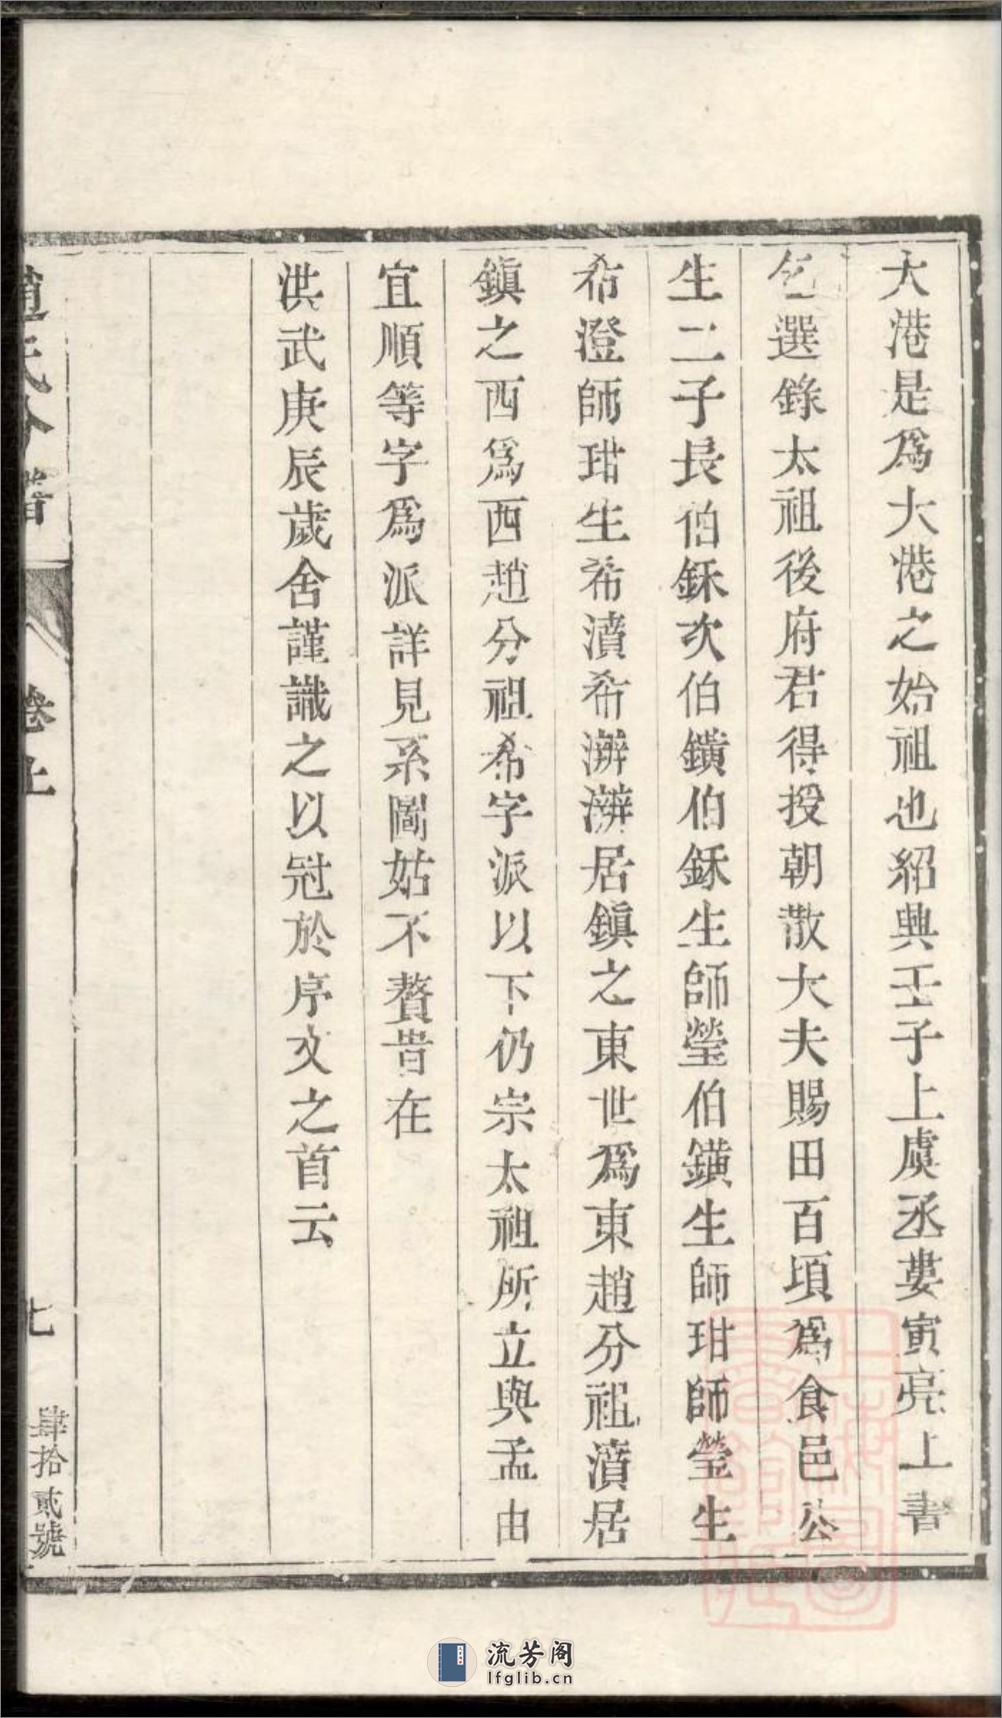 大港是爲大港之始祖也紹興壬子上虞丞婁寅亮上書
乞選錄太祖後府君得授朝散大夫賜田百頃爲食邑公
生二子長伯鉌次伯鐄伯鉌生師瑩伯鐄生師玵師瑩生
希澄師玵生希瀆希濣濣居鎭之東世爲東趙分祖瀆居
鎭之西爲西趙分祖希字派以下仍宗太祖所立與孟由
宜順等字爲派詳見系圖姑不贅昔在
洪武庚辰歲舍謹識之以冠於序文之首云
趙氏分譜
卷上
七
肆拾貳號
流芳阁
lfglib.cn